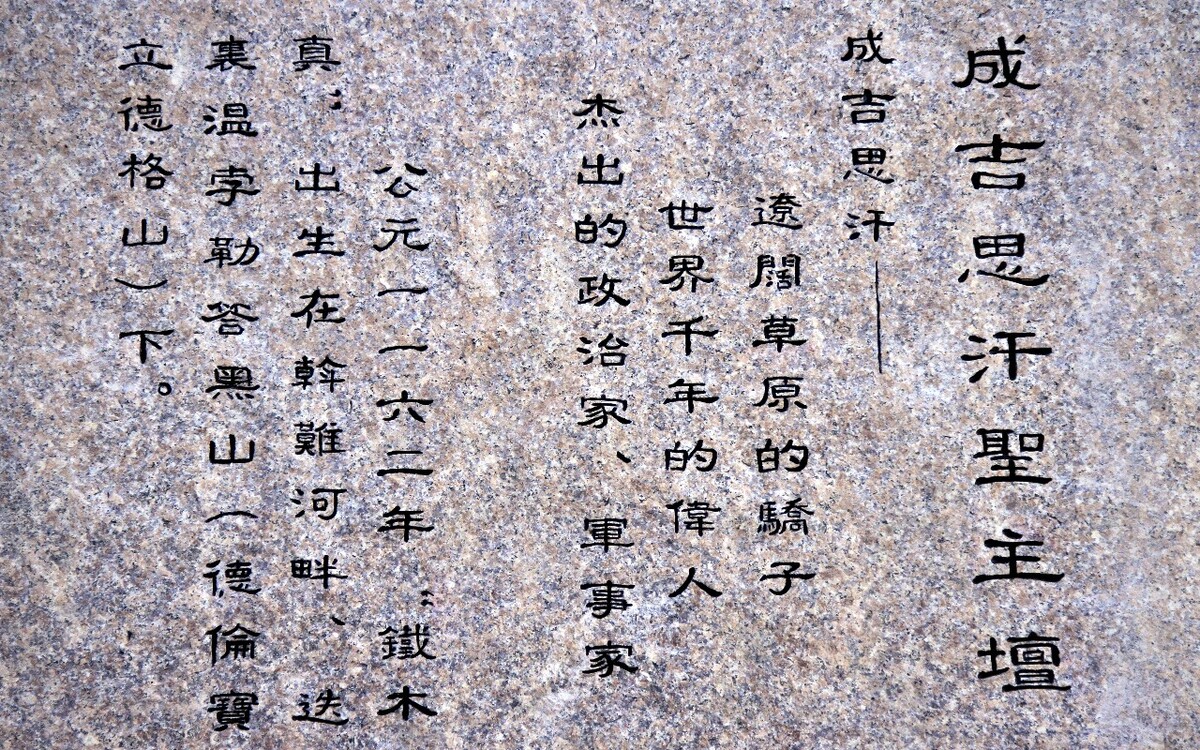 成吉思汗聖主壇
成吉思汗——
遼闊草原的驕子
世界千年的偉人
杰出的政治家、軍事家
公元一一六二年“鐵木
真”出生在斡難河畔、迭
裏温孛勒答黑山（德倫寶
立德格山）下。